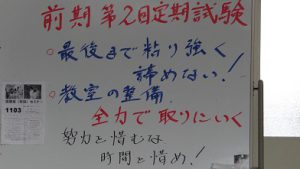 前期第2回定期試験
○最後まで粘り強く
諦めない!
○教室の整備
全力で取りにいく
努力を惜むな
時間を惜め!
1103